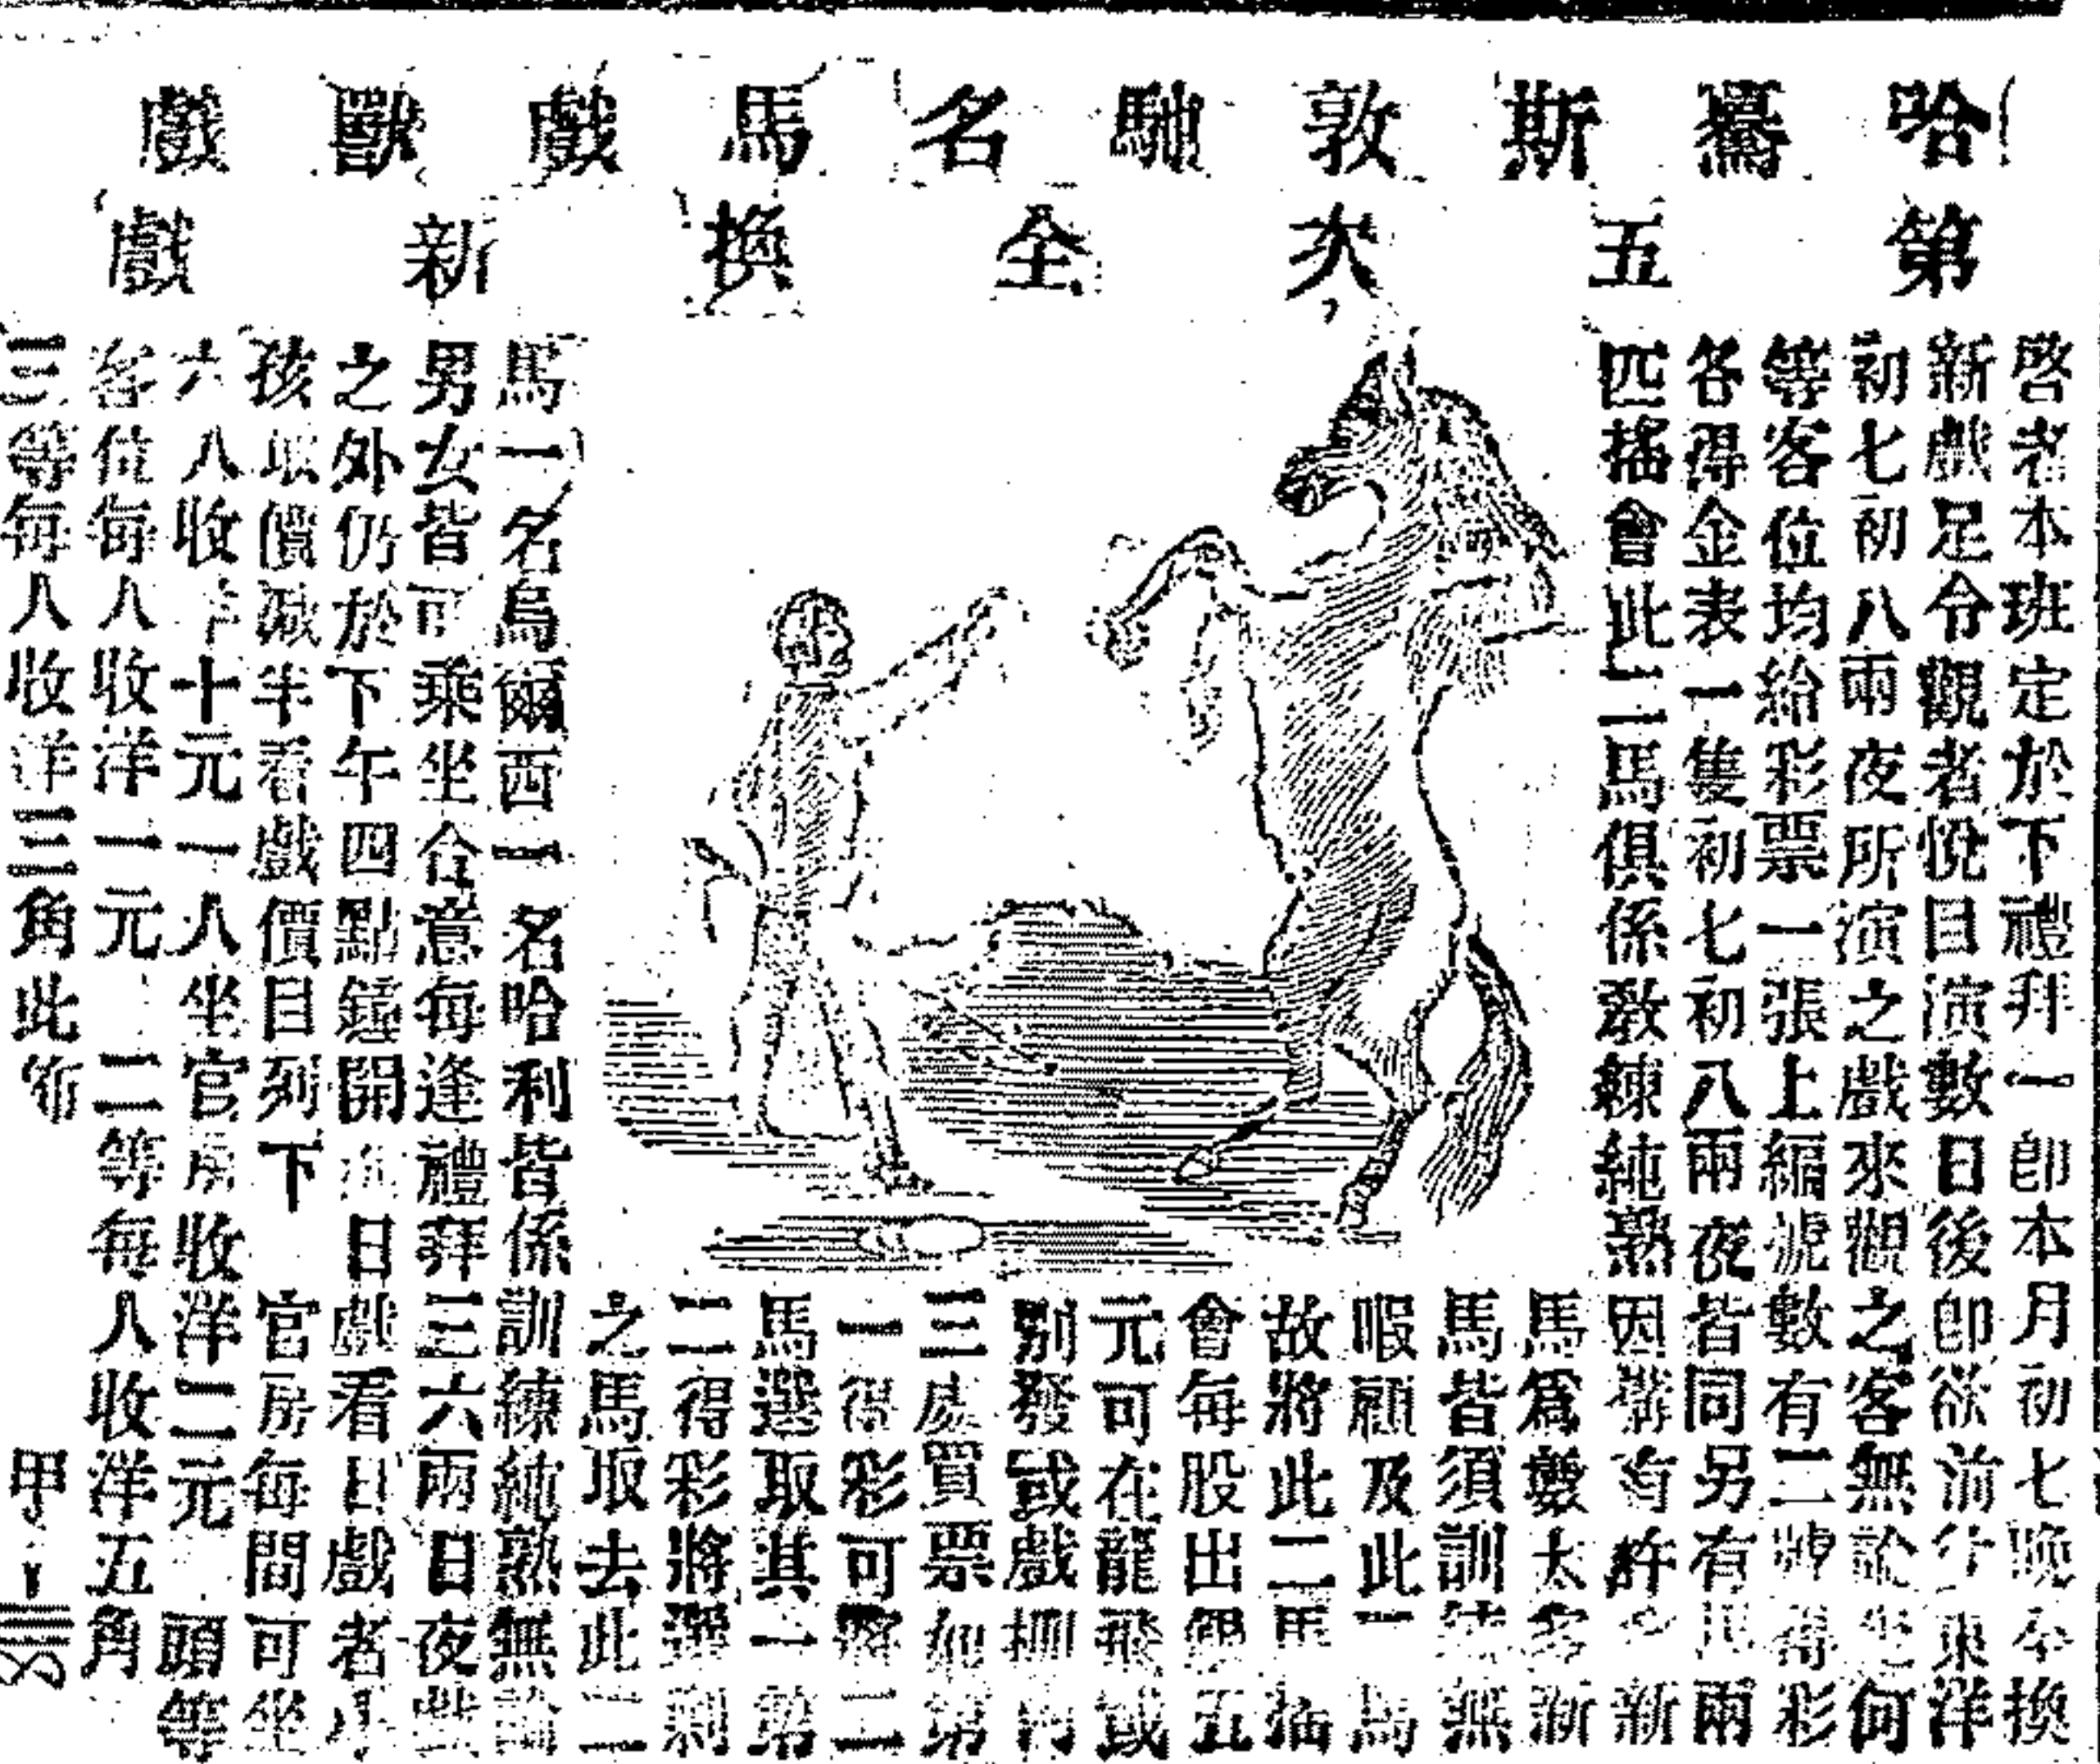 哈驀斯敦馳名馬戲獸戲
第五次全換新戲
啓者本班定於下禮拜一卽本月初七晚全換
新戲足令觀者悅目演數日後卽欲前往東洋
初七初八兩夜所演之戲來觀之客無論坐何
等客位均給彩票一張上編號數有二號得彩
各得金表一隻初七初八兩夜皆同另有馬兩
匹搖會此二馬俱係敎練純熟因購有許多新
馬爲數太多新
馬皆須訓練無
暇顧及此二馬
故將此二馬搖
會每股出銀五
元可在龍飛或
別發或戲棚內
三處買票如第
一得彩可將二
馬選取其一第
二得彩將選剩
之馬取去此二
馬一名烏爾西一名哈利皆係訓練純熟無論
男女皆可乘坐合意每逢禮拜三六兩日夜戲
之外仍於下午四點鐘開演日戲看日戲者小
孩取價減半看戲價目列下　官房每間可坐
六人收洋十元一人坐官房收洋二元　頭等
客位每人收洋一元　二等每人收洋五角
三等每人收洋三角此佈　甲